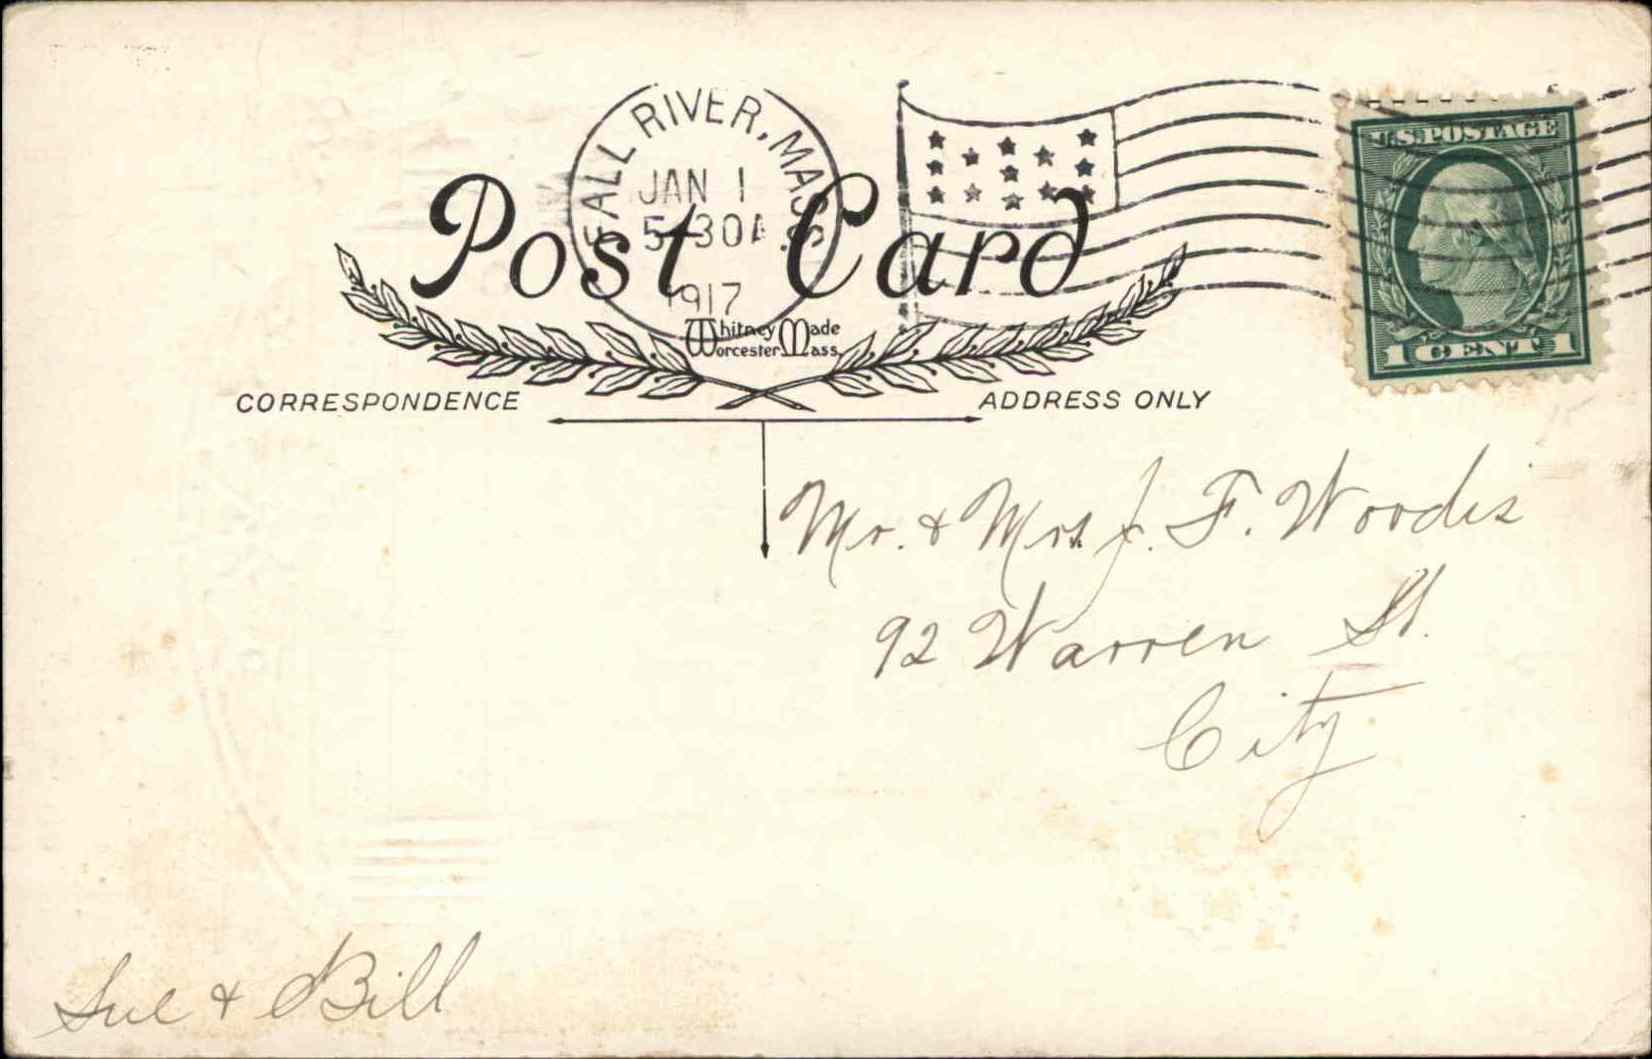 FALL RIVER, MASS.
JAN 1
5-30A
1917
U.S. POSTAGE
1 CENT 1
Post Card
Whitney Made
Worcester Mass
CORRESPONDENCE
ADDRESS ONLY
Mr. & Mrs. J. F. Woodis
92 Warren St.
City
Sue & Bill